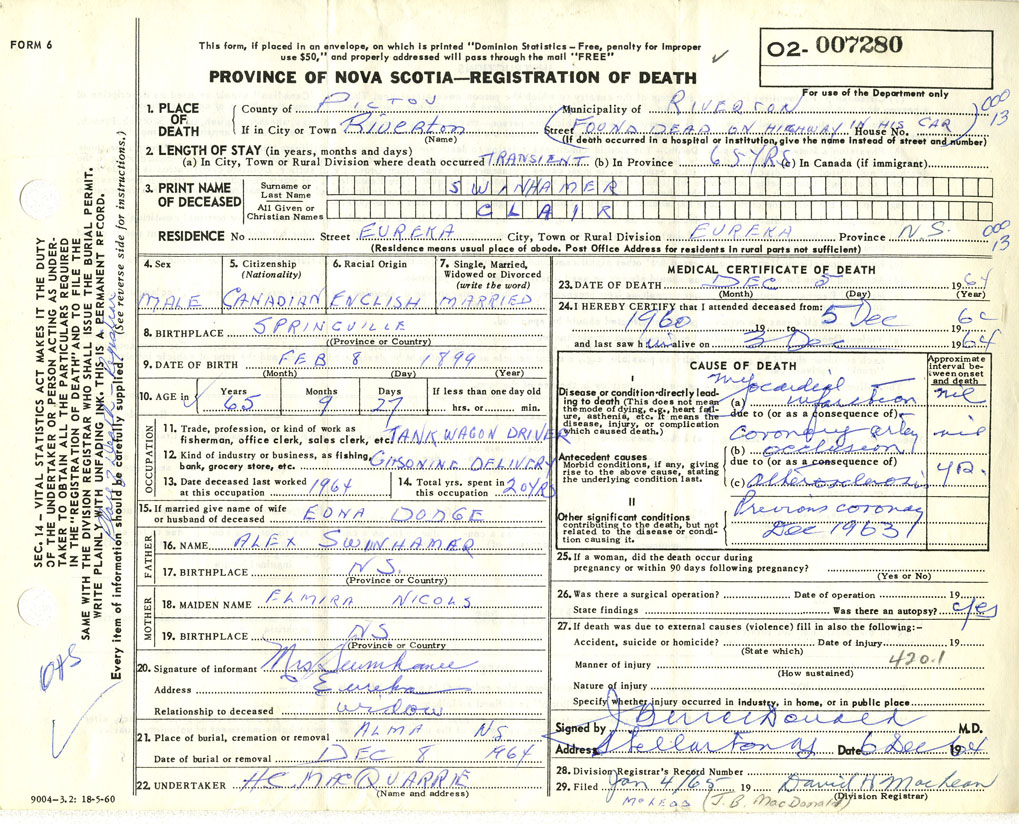 FORM 6
This form, if placed in an envelope, on which is printed "Dominion Statistics – Free, penalty for improper
use $50," and properly addressed will pass through the mail "FREE"
O2- 007280
PROVINCE OF NOVA SCOTIA—REGISTRATION OF DEATH
For use of the Department only
1. PLACE OF DEATH
County of PICTOU Municipality of RIVERTON
000 13
If in City or Town Riverton Street FOUND DEAD ON HIGHWAY IN HIS CAR House No.
(Name) (If death occurred in a hospital or institution, give the name instead of street and number)
2. LENGTH OF STAY (in years, months and days)
(a) In City, Town or Rural Division where death occurred TRANSIENT (b) In Province 65 YRS (c) In Canada (if immigrant)
3. PRINT NAME OF DECEASED
Surname or Last Name SWINHAMER
All Given or Christian Names CLAIR
RESIDENCE No. Street EUREKA City, Town or Rural Division EUREKA Province N.S.
000 13
(Residence means usual place of abode. Post Office Address for residents in rural parts not sufficient)
4. Sex
MALE
5. Citizenship (Nationality)
CANADIAN
6. Racial Origin
ENGLISH
7. Single, Married, Widowed or Divorced (write the word)
MARRIED
8. BIRTHPLACE SPRINGVILLE
(Province or Country)
9. DATE OF BIRTH FEB 8 1899
(Month) (Day) (Year)
10. AGE in Years Months Days If less than one day old
65 9 27 hrs. or min.
OCCUPATION
11. Trade, profession, or kind of work as
fisherman, office clerk, sales clerk, etc. TANK WAGON DRIVER
12. Kind of industry or business, as fishing,
bank, grocery store, etc. GASONINE DELIVERY
13. Date deceased last worked at this occupation 1964
14. Total yrs. spent in this occupation 20 YRS
15. If married give name of wife
or husband of deceased EDNA DODGE
FATHER
16. NAME ALEX SWINHAMER
17. BIRTHPLACE N.S.
(Province or Country)
MOTHER
18. MAIDEN NAME ELMIRA NICOLS
19. BIRTHPLACE NS
(Province or Country)
20. Signature of informant Mrs Swinhamer
Address Eureka
Relationship to deceased widow
21. Place of burial, cremation or removal ALMA NS
Date of burial or removal DEC 8 1964
22. UNDERTAKER H.C. MACQUARRIE
(Name and address)
MEDICAL CERTIFICATE OF DEATH
23. DATE OF DEATH DEC 5 1964
(Month) (Day) (Year)
24. I HEREBY CERTIFY that I attended deceased from:
1960 19 to 5 Dec 64
and last saw him alive on 3 Dec 1964
CAUSE OF DEATH
Approximate interval between onset and death
I
Disease or condition directly leading to death (This does not mean the mode of dying, e.g., heart failure, asthenia, etc. It means the disease, injury, or complication which caused death.)
(a) Myocardial infarction nil
due to (or as a consequence of)
Antecedent causes
Morbid conditions, if any, giving rise to the above cause, stating the underlying condition last.
(b) coronary artery occlusion nil
due to (or as a consequence of)
(c) Atherosclerosis
II
Other significant conditions
contributing to the death, but not related to the disease or condition causing it.
Previous coronary
Dec 1963
25. If a woman, did the death occur during
pregnancy or within 90 days following pregnancy?
(Yes or No)
26. Was there a surgical operation? Date of operation 19
State findings Was there an autopsy? yes
27. If death was due to external causes (violence) fill in also the following:-
Accident, suicide or homicide? Date of injury 19
(State which)
Manner of injury 420.1
(How sustained)
Nature of injury
Specify whether injury occurred in industry, in home, or in public place
Signed by J B MacDonald M.D.
Address Stellarton NS Date 6 Dec 1964
28. Division Registrar's Record Number
29. Filed Jan 4/65 19 David H MacLean
(Division Registrar)
McLeod (J.B. MacDonald)
SEC. 14 – VITAL STATISTICS ACT MAKES IT THE DUTY
OF THE UNDERTAKER OR PERSON ACTING AS UNDERTAKER TO OBTAIN ALL THE PARTICULARS REQUIRED
IN THE "REGISTRATION OF DEATH" AND TO FILE THE
SAME WITH THE DIVISION REGISTRAR WHO SHALL ISSUE THE BURIAL PERMIT.
WRITE PLAINLY WITH UNFADING INK. THIS IS A PERMANENT RECORD.
Every item of information should be carefully supplied. (See reverse side for instructions.)
9004-3.2: 18-5-60